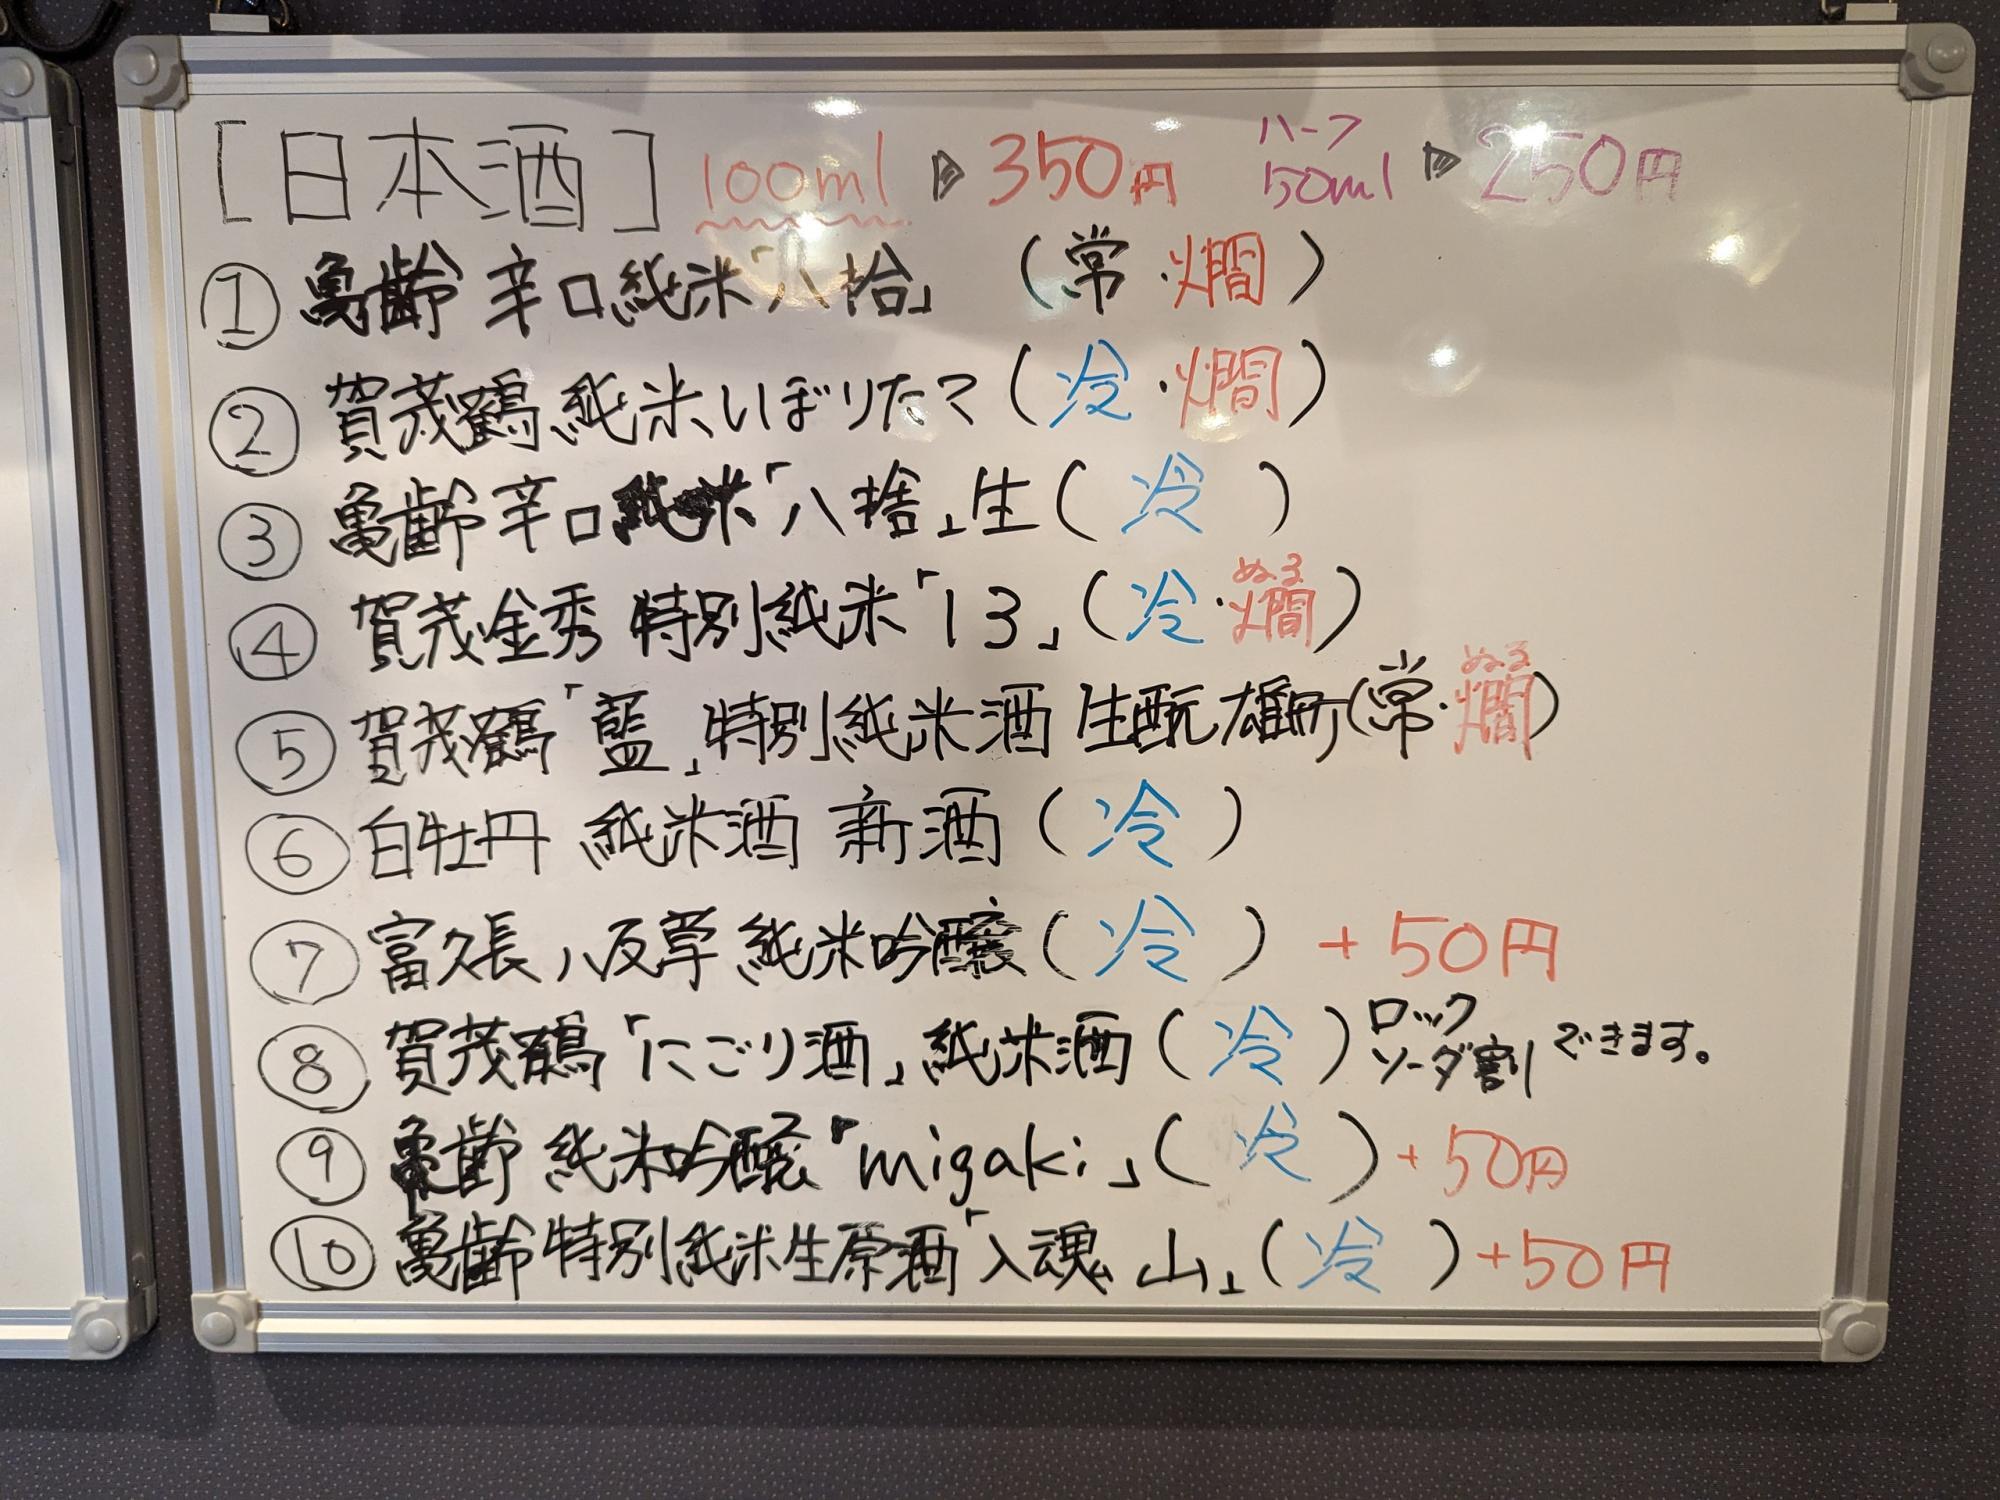 [日本酒] 100ml ▶ 350円 ハーフ 50ml ▶ 250円
① 亀齢 辛口純米「八拾」 (常・燗)
② 賀茂鶴 純米しぼりたて (冷・燗)
③ 亀齢 辛口純米「八捨」生 (冷)
④ 賀茂金秀 特別純米「13」 (冷・ぬる燗)
⑤ 賀茂鶴「藍」特別純米酒 生酛 雄町 (常・ぬる燗)
⑥ 白牡丹 純米酒 新酒 (冷)
⑦ 富久長 八反草 純米吟醸 (冷) +50円
⑧ 賀茂鶴「にごり酒」純米酒 (冷) ロック ソーダ割 できます。
⑨ 亀齢 純米吟醸「migaki」 (冷) +50円
⑩ 亀齢 特別純米生原酒「入魂 山」 (冷) +50円